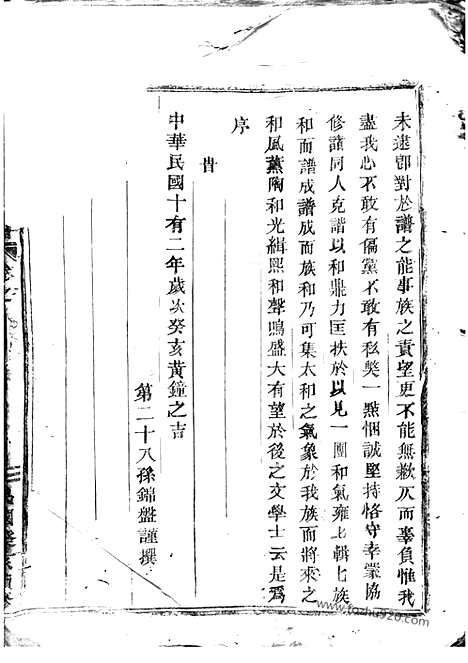 未逮卽對於譜之能事族之責望更不能無歉仄而辜負惟我
盡我心不敢有偏黨不敢有私獎一點悃誠堅持恪守幸蒙協
修諸同人克諧以和鼎力匡扶於以見一團和氣雍上輯七族
和而譜成譜成而族和乃可集太和之氣象於我族而將來之
和風薰陶和光緝熙和聲鳴盛大有望於後之文學士云是爲
序
旹
中華民國十有二年歲次癸亥黃鐘之吉
第二十八孫錦盤謹撰
www.fozhu920.com